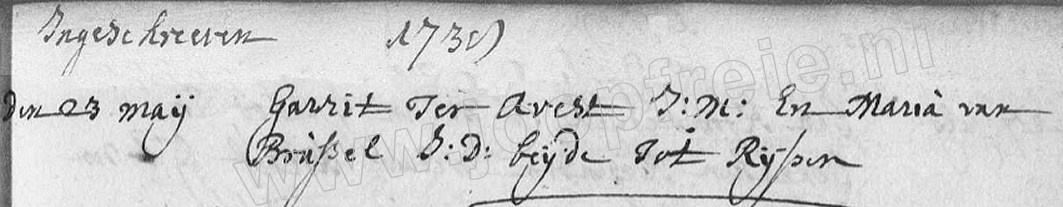 Ingeschreeven 173
den 23 maÿ Garrit Ter Avest J: M: En Maria van
Brussel J: D: beÿde Tot Rÿssen
www.joopfreie.nl